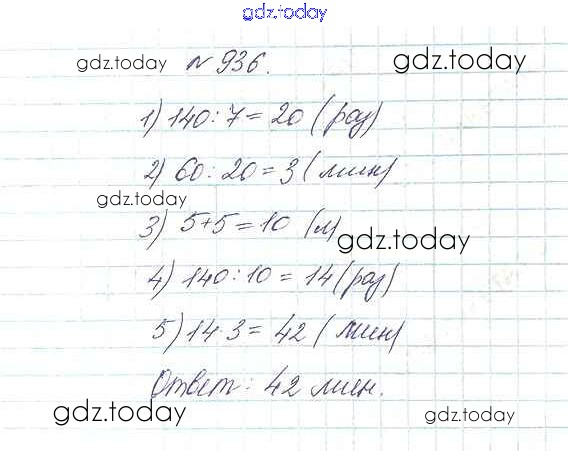 gdz.today
gdz.today № 936. gdz.today
1) 140 : 7 = 20 (раз)
2) 60 : 20 = 3 (мин)
gdz.today
3) 5 + 5 = 10 (м)
gdz.today
4) 140 : 10 = 14 (раз)
5) 14 · 3 = 42 (мин)
Ответ: 42 мин.
gdz.today gdz.today